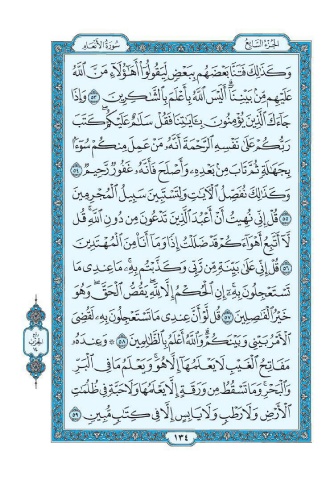 سُورَةُ الْأَنْعَامِ الجُزْءُ السَّابِعُ
وَكَذَٰلِكَ فَتَنَّا بَعْضَهُم بِبَعْضٍ لِّيَقُولُوٓا۟ أَهَٰٓؤُلَآءِ مَنَّ ٱللَّهُ
عَلَيْهِم مِّنۢ بَيْنِنَآ أَلَيْسَ ٱللَّهُ بِأَعْلَمَ بِٱلشَّٰكِرِينَ ٥٣ وَإِذَا
جَآءَكَ ٱلَّذِينَ يُؤْمِنُونَ بِـَٔايَٰتِنَا فَقُلْ سَلَٰمٌ عَلَيْكُمْ كَتَبَ
رَبُّكُمْ عَلَىٰ نَفْسِهِ ٱلرَّحْمَةَ أَنَّهُۥ مَنْ عَمِلَ مِنكُمْ سُوٓءًۢا
بِجَهَٰلَةٍ ثُمَّ تَابَ مِنۢ بَعْدِهِۦ وَأَصْلَحَ فَأَنَّهُۥ غَفُورٌ رَّحِيمٌ ٥٤
وَكَذَٰلِكَ نُفَصِّلُ ٱلْـَٔايَٰتِ وَلِتَسْتَبِينَ سَبِيلُ ٱلْمُجْرِمِينَ
٥٥ قُلْ إِنِّى نُهِيتُ أَنْ أَعْبُدَ ٱلَّذِينَ تَدْعُونَ مِن دُونِ ٱللَّهِ قُل
لَّآ أَتَّبِعُ أَهْوَآءَكُمْ قَدْ ضَلَلْتُ إِذًا وَمَآ أَنَا۠ مِنَ ٱلْمُهْتَدِينَ
٥٦ قُلْ إِنِّى عَلَىٰ بَيِّنَةٍ مِّن رَّبِّى وَكَذَّبْتُم بِهِۦ مَا عِندِى مَا
تَسْتَعْجِلُونَ بِهِۦٓ إِنِ ٱلْحُكْمُ إِلَّا لِلَّهِ يَقُصُّ ٱلْحَقَّ وَهُوَ
خَيْرُ ٱلْفَٰصِلِينَ ٥٧ قُل لَّوْ أَنَّ عِندِى مَا تَسْتَعْجِلُونَ بِهِۦ لَقُضِىَ
ٱلْأَمْرُ بَيْنِى وَبَيْنَكُمْ وَٱللَّهُ أَعْلَمُ بِٱلظَّٰلِمِينَ ٥٨ وَعِندَهُۥ
مَفَاتِحُ ٱلْغَيْبِ لَا يَعْلَمُهَآ إِلَّا هُوَ وَيَعْلَمُ مَا فِى ٱلْبَرِّ
وَٱلْبَحْرِ وَمَا تَسْقُطُ مِن وَرَقَةٍ إِلَّا يَعْلَمُهَا وَلَا حَبَّةٍ فِى ظُلُمَٰتِ
ٱلْأَرْضِ وَلَا رَطْبٍ وَلَا يَابِسٍ إِلَّا فِى كِتَٰبٍ مُّبِينٍ ٥٩
١٣٤